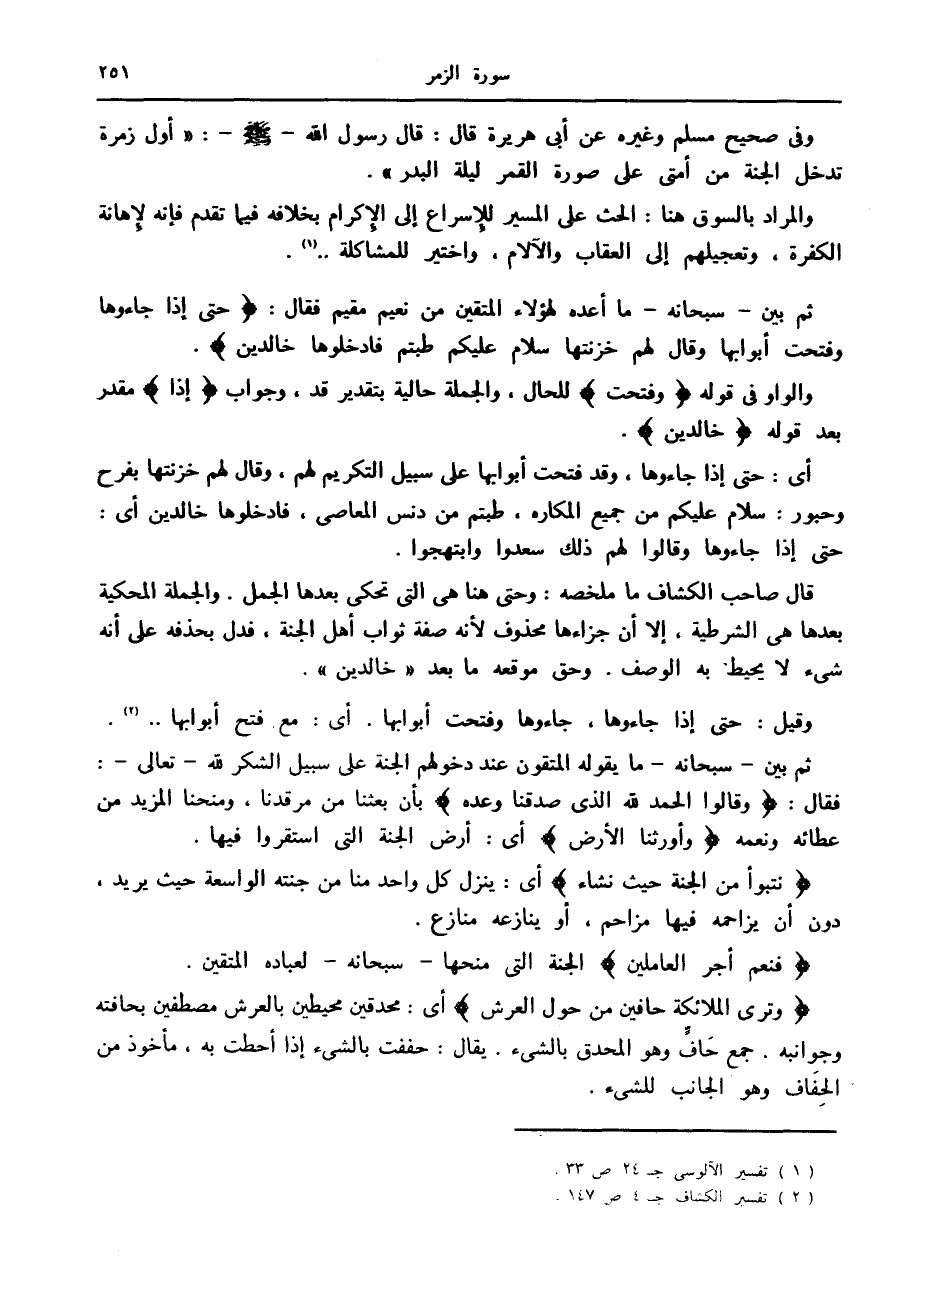 سورة الزمر ٢٥١
وفى صحيح مسلم وغيره عن أبى هريرة قال : قال رسول الله – ﷺ – : « أول زمرة
تدخل الجنة من أمتى على صورة القمر ليلة البدر » .
والمراد بالسوق هنا : الحث على المسير للإسراع إلى الإكرام بخلافه فيما تقدم فإنه لإهانة
الكفرة ، وتعجيلهم إلى العقاب والآلام ، واختير للمشاكلة ..(١) .
ثم بين – سبحانه – ما أعده لهؤلاء المتقين من نعيم مقيم فقال : ﴿ حتى إذا جاءوها
وفتحت أبوابها وقال لهم خزنتها سلام عليكم طبتم فادخلوها خالدين ﴾ .
والواو فى قوله ﴿ وفتحت ﴾ للحال ، والجملة حالية بتقدير قد ، وجواب ﴿ إذا ﴾ مقدر
بعد قوله ﴿ خالدين ﴾ .
أى : حتى إذا جاءوها ، وقد فتحت أبوابها على سبيل التكريم لهم ، وقال لهم خزنتها بفرح
وحبور : سلام عليكم من جميع المكاره ، طبتم من دنس المعاصى ، فادخلوها خالدين أى :
حتى إذا جاءوها وقالوا لهم ذلك سعدوا وابتهجوا .
قال صاحب الكشاف ما ملخصه : وحتى هنا هى التى تحكى بعدها الجمل . والجملة المحكية
بعدها هى الشرطية ، إلا أن جزاءها محذوف لأنه صفة ثواب أهل الجنة ، فدل بحذفه على أنه
شىء لا يحيط به الوصف . وحق موقعه ما بعد « خالدين » .
وقيل : حتى إذا جاءوها ، جاءوها وفتحت أبوابها . أى : مع فتح أبوابها .. (٢) .
ثم بين – سبحانه – ما يقوله المتقون عند دخولهم الجنة على سبيل الشكر لله – تعالى – :
فقال : ﴿ وقالوا الحمد لله الذى صدقنا وعده ﴾ بأن بعثنا من مرقدنا ، ومنحنا المزيد من
عطائه ونعمه ﴿ وأورثنا الأرض ﴾ أى : أرض الجنة التى استقروا فيها .
﴿ نتبوأ من الجنة حيث نشاء ﴾ أى : ينزل كل واحد منا من جنته الواسعة حيث يريد ،
دون أن يزاحمه فيها مزاحم ، أو ينازعه منازع .
﴿ فنعم أجر العاملين ﴾ الجنة التى منحها – سبحانه – لعباده المتقين .
﴿ وترى الملائكة حافين من حول العرش ﴾ أى : محدقين محيطين بالعرش مصطفين بحافته
وجوانبه . جمع حَافٍّ وهو المحدق بالشىء . يقال : حففت بالشىء إذا أحطت به ، مأخوذ من
الحِفَاف وهو الجانب للشىء .
( ١ ) تفسير الآلوسى جـ ٢٤ ص ٣٣ .
( ٢ ) تفسير الكشاف جـ ٤ ص ١٤٧ .